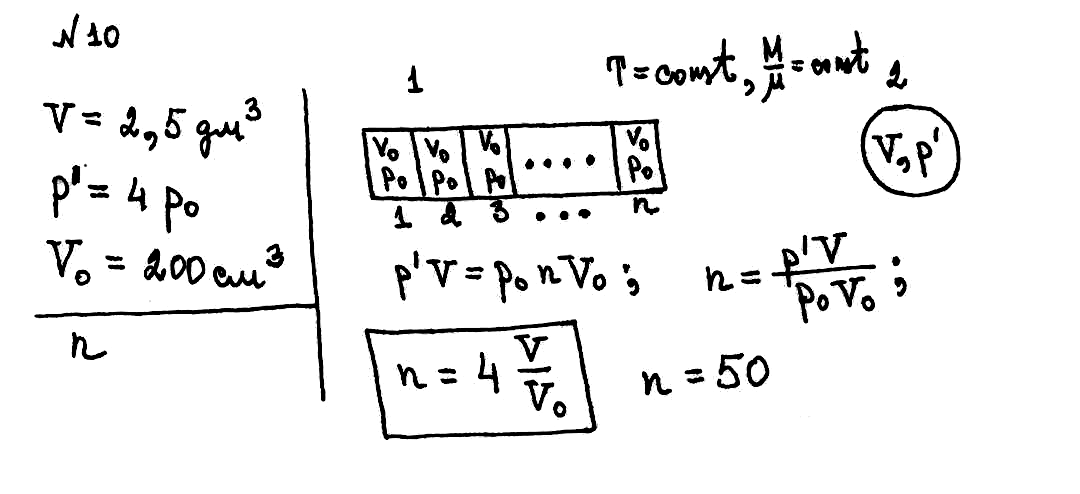 N 10
V = 2,5 дм³
p' = 4 p₀
V₀ = 200 см³
n
T = const, M/μ = const
1
2
V₀ V₀ V₀ .... V₀
p₀ p₀ p₀ p₀
1 2 3 ... n
V, p'
p'V = p₀ n V₀ ; n = p'V / p₀V₀ ;
n = 4 V/V₀ n = 50